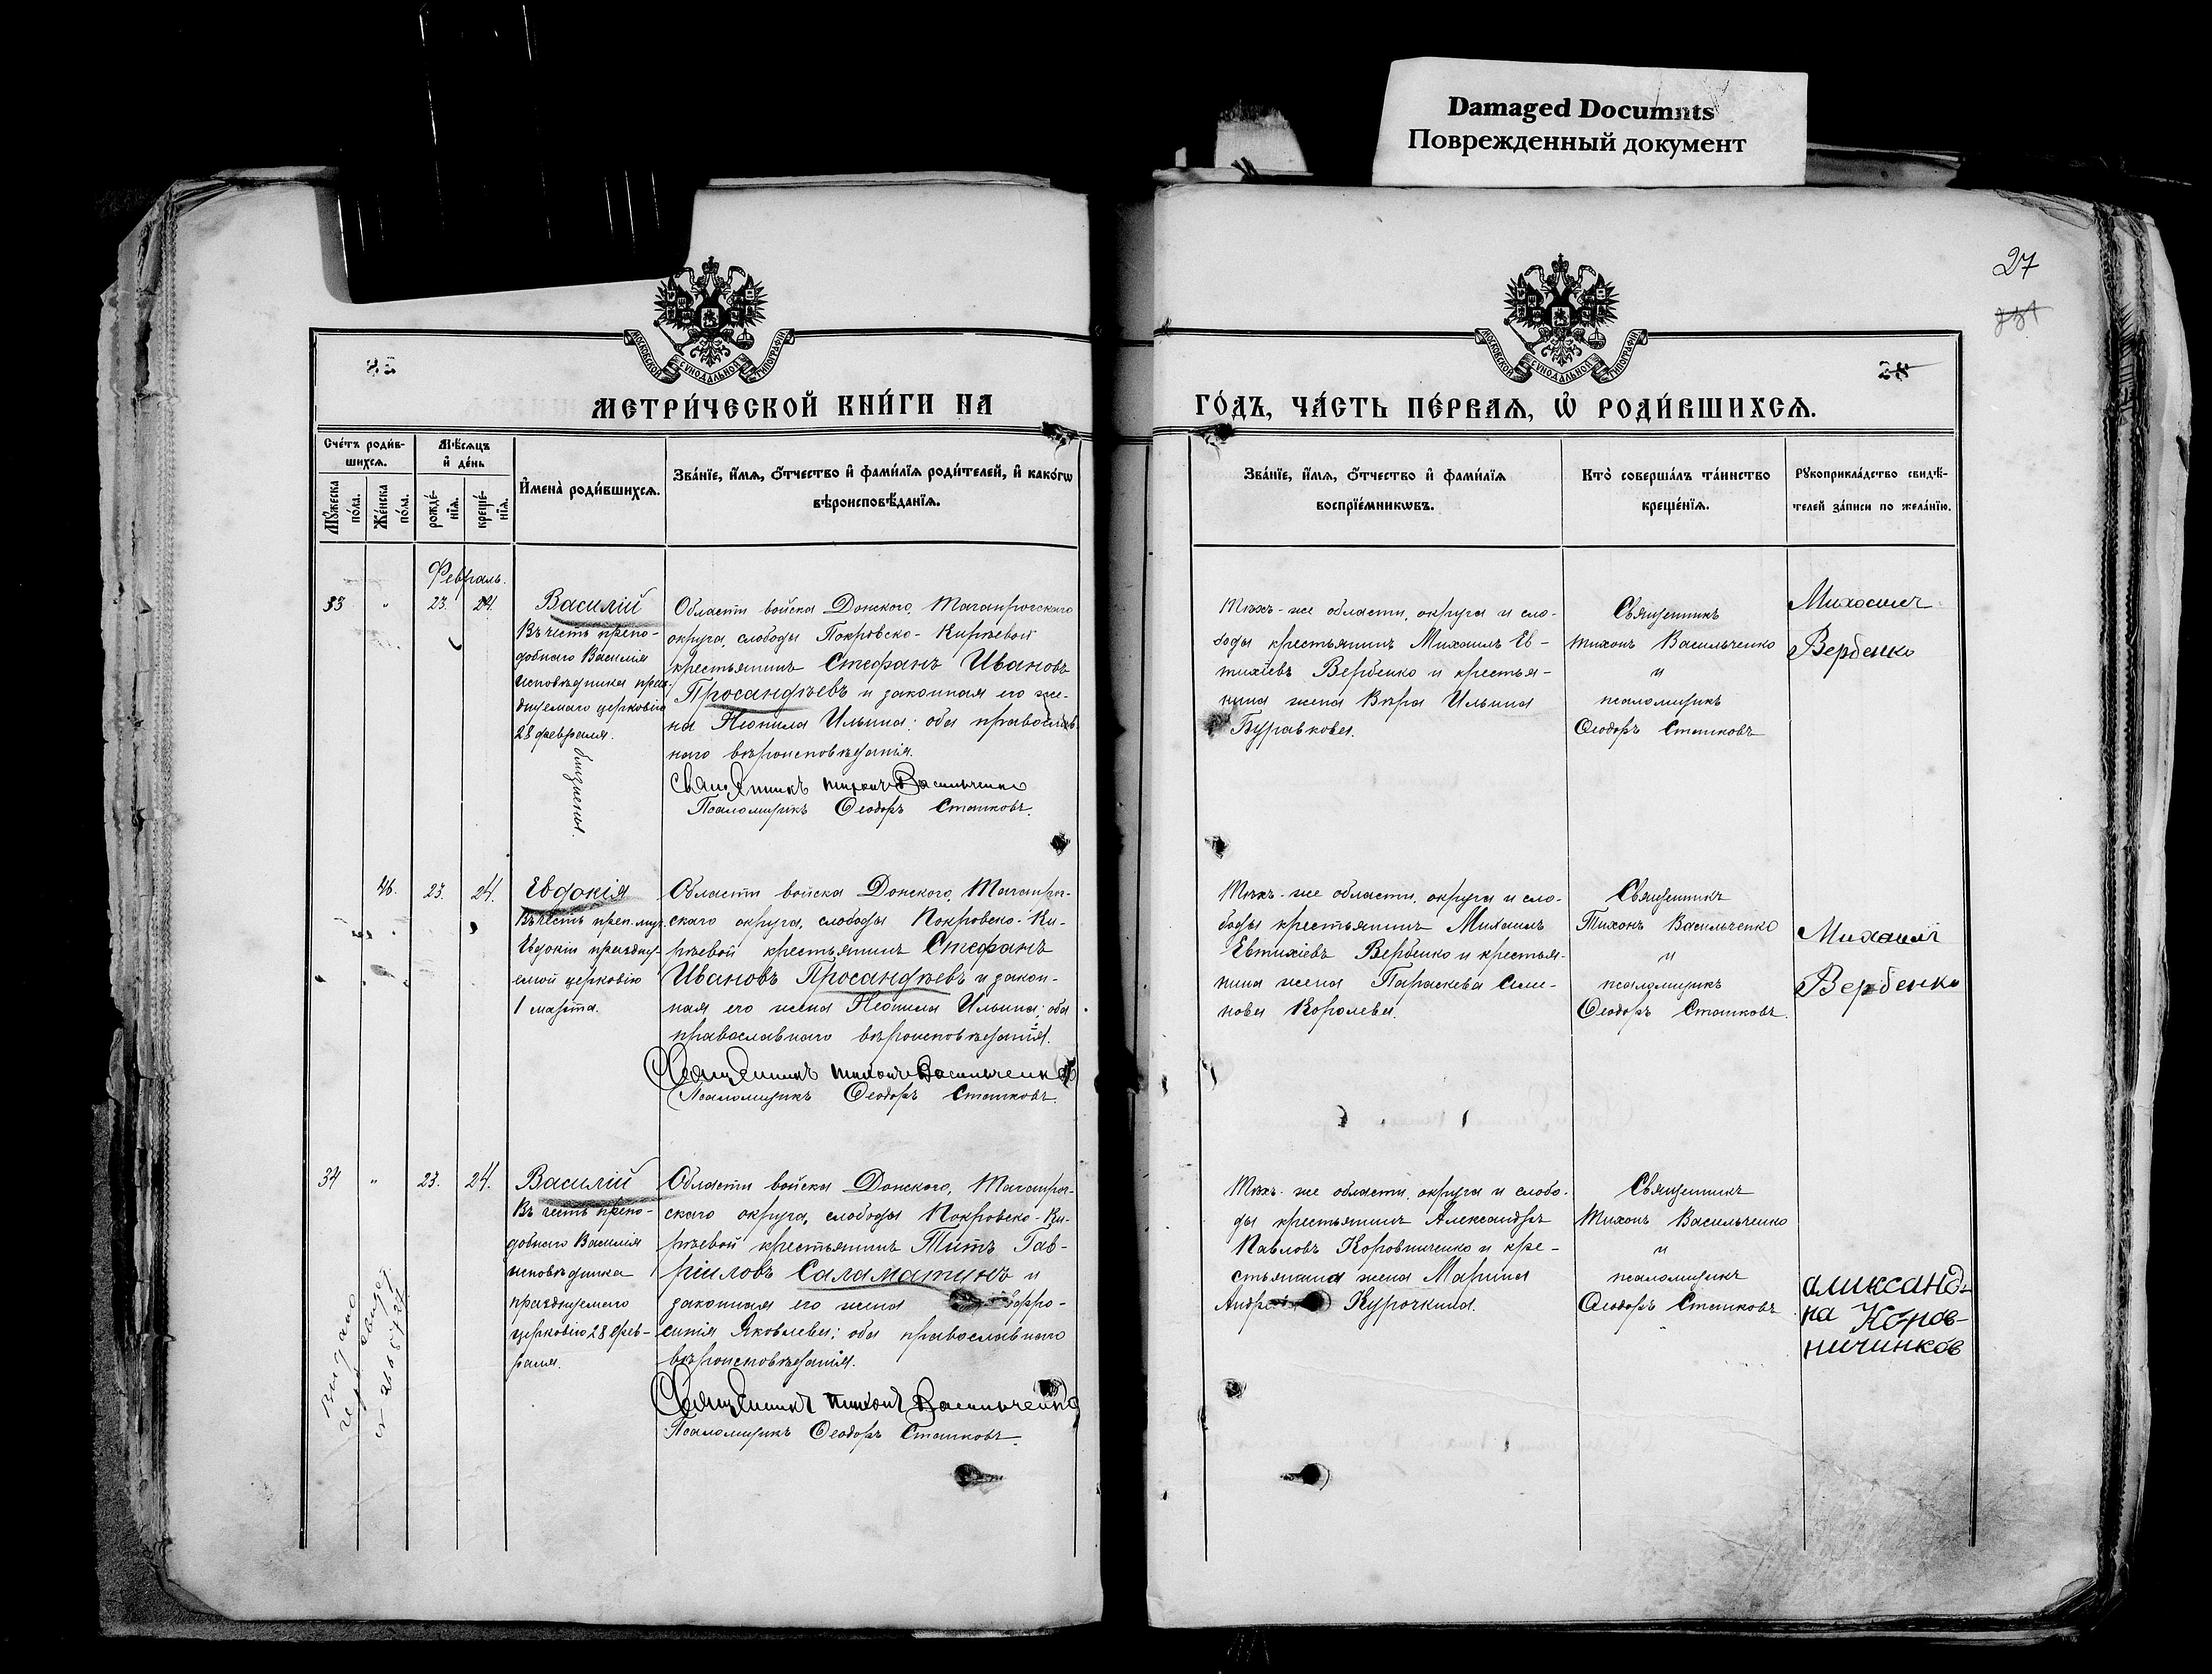 Damaged Documnts
Поврежденный документ
27
28
МОСКОВСКОЙ СУНОДАЛЬНОЙ ТИПОГРАФІИ
МОСКОВСКОЙ СУНОДАЛЬНОЙ ТИПОГРАФІИ
МЕТРИ́ЧЕСКОЙ КНИ́ГИ НА
ГО́ДЪ, ЧА́СТЬ ПЕ́РВАЯ, Ѡ РОДИ́ВШИХСЯ.
Сче́тъ роди́в-
шихся.
Мѣ́сяцъ
и҆ де́нь
Мꙋ́жеска
по́ла.
Же́нска
по́ла.
рожде́-
нїѧ.
креще́-
нїѧ.
И҆мена̀ роди́вшихсѧ.
Зва́нїе, и҆́мѧ, ѻ҆́тчество и҆ фами́лїѧ роди́телей, и҆ како́гѡ
вѣроисповѣ́данїѧ.
Зва́нїе, и҆́мѧ, ѻ҆́тчество и҆ фами́лїѧ
воспрїе́мникѡвъ.
Кто̀ соверша́лъ та́инство
креще́нїѧ.
Рꙋкоприкла́дство свидѣ́-
телей за́писи по жела́нїю.
Февраль.
33 " 23. 24.
Василій
Въ честь препо-
добнаго Василія
исповѣдника празд-
дуемаго церковію
28 февраля.
близнецы.
Области войска Донского, Таганрогскаго
округа, слободы Покровско-Кирѣевой
крестьянинъ Стефанъ Ивановъ
Просандѣевъ и законная его же-
на Неонила Ильина; оба православ-
наго вѣроисповѣданія.
Священникъ Тихонъ Васильченко
Псаломщикъ Ѳеодоръ Сташковъ.
Тѣхъ-же области, округа и сло-
боды крестьянинъ Михаилъ Ев-
тихіевъ Вербенко и крестья-
нина жена Вѣра Ильина
Буравкова.
Священникъ
Тихонъ Васильченко
и
псаломщикъ
Ѳеодоръ Сташковъ
Михаилъ
Вербенко
46. 23. 24.
Евдокія
Въ честь преп. муч.
Евдокіи праздну-
емой церковію
1 марта.
Области войска Донского, Таганрог-
скаго округа, слободы Покровско-Ки-
рѣевой крестьянинъ Стефанъ
Ивановъ Просандѣевъ и закон-
ная его жена Неонила Ильина; оба
православнаго вѣроисповѣданія.
Священникъ Тихонъ Васильченко
Псаломщикъ Ѳеодоръ Сташковъ.
Тѣхъ-же области, округа и сло-
боды крестьянинъ Михаилъ
Евтихіевъ Вербенко и крестья-
нина жена Параскева Семе-
нова Королева.
Священникъ
Тихонъ Васильченко
и
псаломщикъ
Ѳеодоръ Сташковъ.
Михаилъ
Вербенко
34 " 23. 24.
Василій
Въ честь препо-
добнаго Василія
исповѣдника
празднуемаго
церковію 28 фев-
раля.
Области войска Донского, Таганрог-
скаго округа, слободы Покровско-Ки-
рѣевой крестьянинъ Титъ Гав-
ріиловъ Саламатинъ и
законная его жена Евфро-
синія Яковлева; оба православнаго
вѣроисповѣданія.
Священникъ Тихонъ Васильченко
Псаломщикъ Ѳеодоръ Сташковъ.
Тѣхъ-же области, округа и слобо-
ды крестьянинъ Александръ
Павловъ Коровниченко и кре-
стьянина жена Марина
Курочкина.
Священникъ
Тихонъ Васильченко
и
псаломщикъ
Ѳеодоръ Сташковъ
Аликсанд-
ра Коров-
ничинков
Выдано